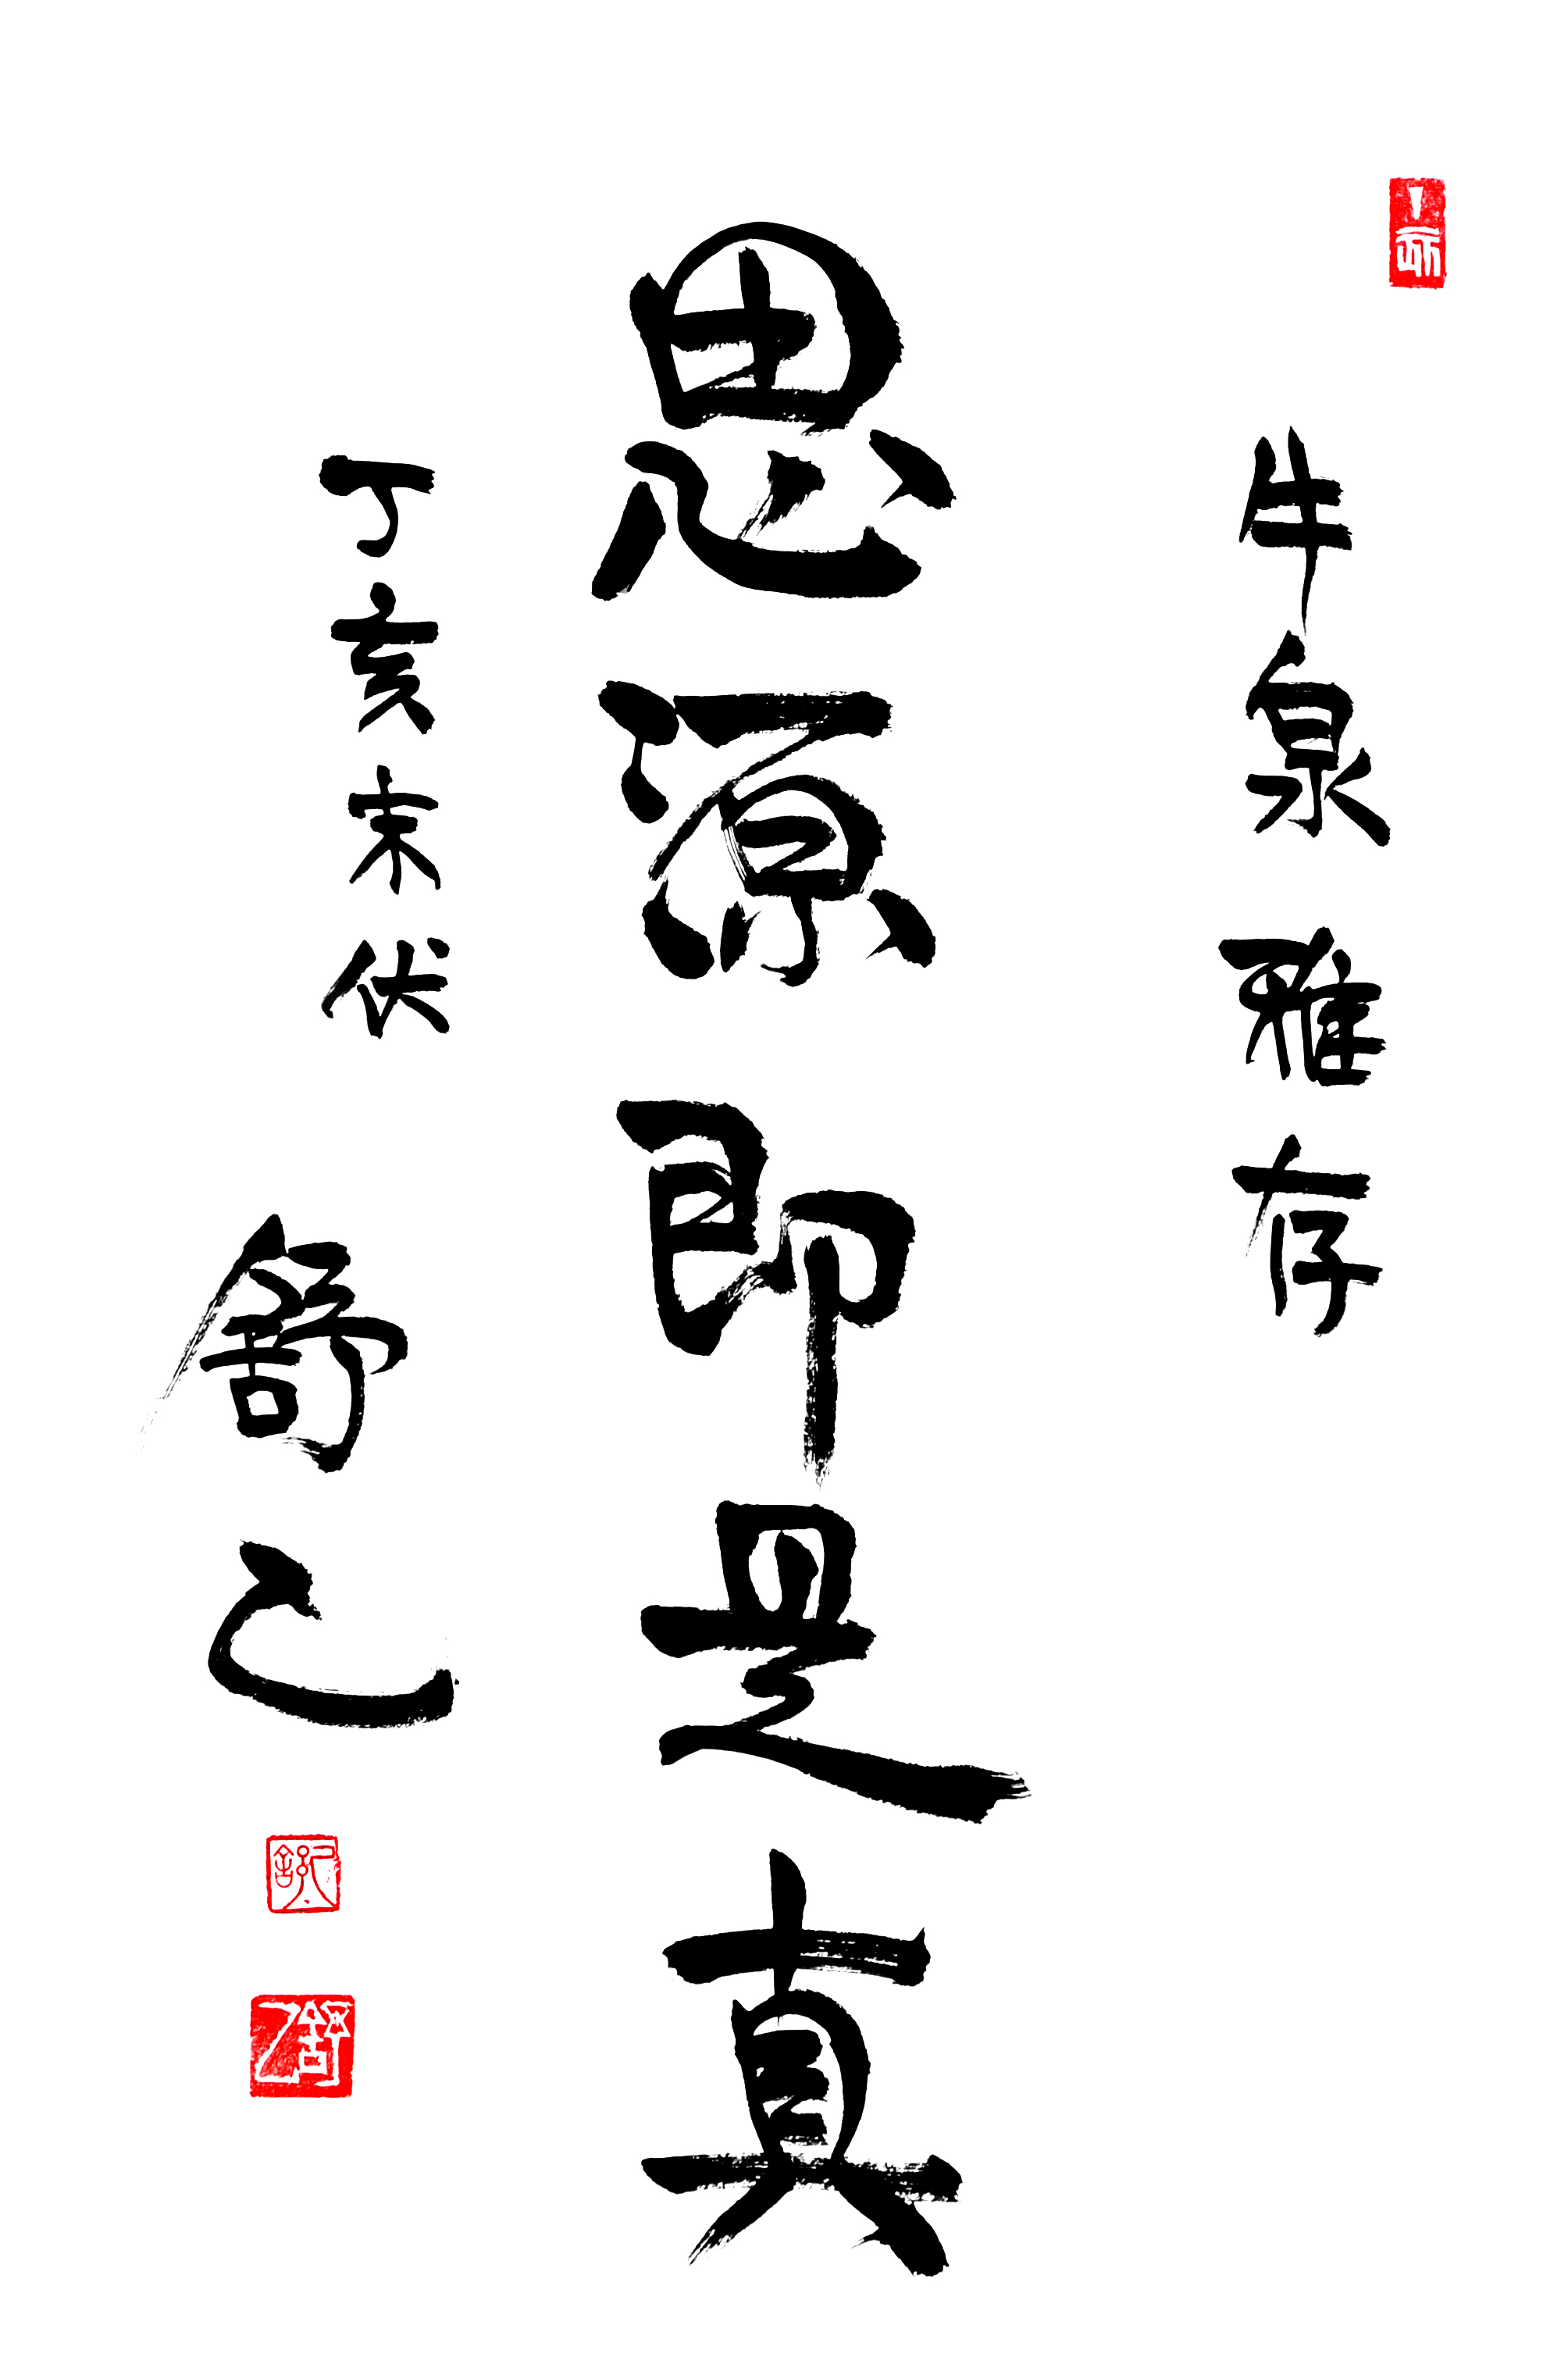 牛泉 雅存
思源即是真
丁亥末伏 舒己